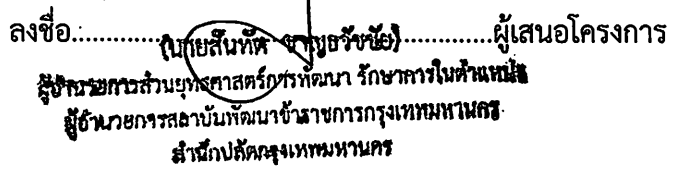 ลงชื่อ.............(นายสันทัด ชาญธวัชชัย)...............ผู้เสนอโครงการ
ผู้อำนวยการส่วนยุทธศาสตร์การพัฒนา รักษาการในตำแหน่ง
ผู้อำนวยการสถาบันพัฒนาข้าราชการกรุงเทพมหานคร
สำนักปลัดกรุงเทพมหานคร